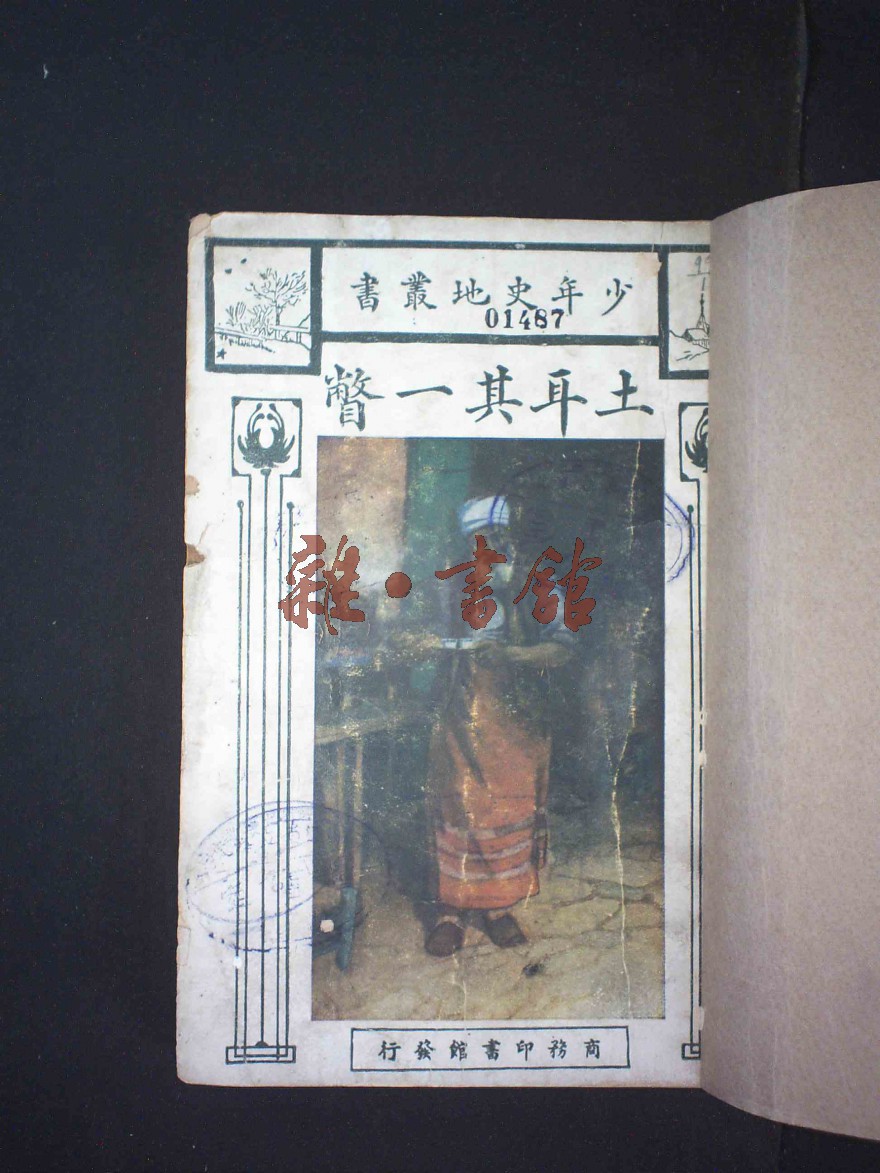 少年史地叢書
01487
土耳其一瞥
雜·書館
商務印書館發行